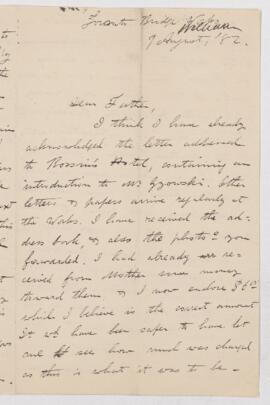 Toronto Bridge William
9 August, '82.
Dear Father,
I think I have already
acknowledged the letter addressed
to Rossin's Hotel, containing an
introduction to Mr Gzowski. Other
letters & papers arrive regularly at
the Wabs. I have received the ad-
dress book, & also the photos you
forwarded. I had already re-
ceived from Mother some money
toward them, & I now enclose
which I believe is the correct amount
It wd have been safer to have let
me see how much was charged
as this is what it was to be-